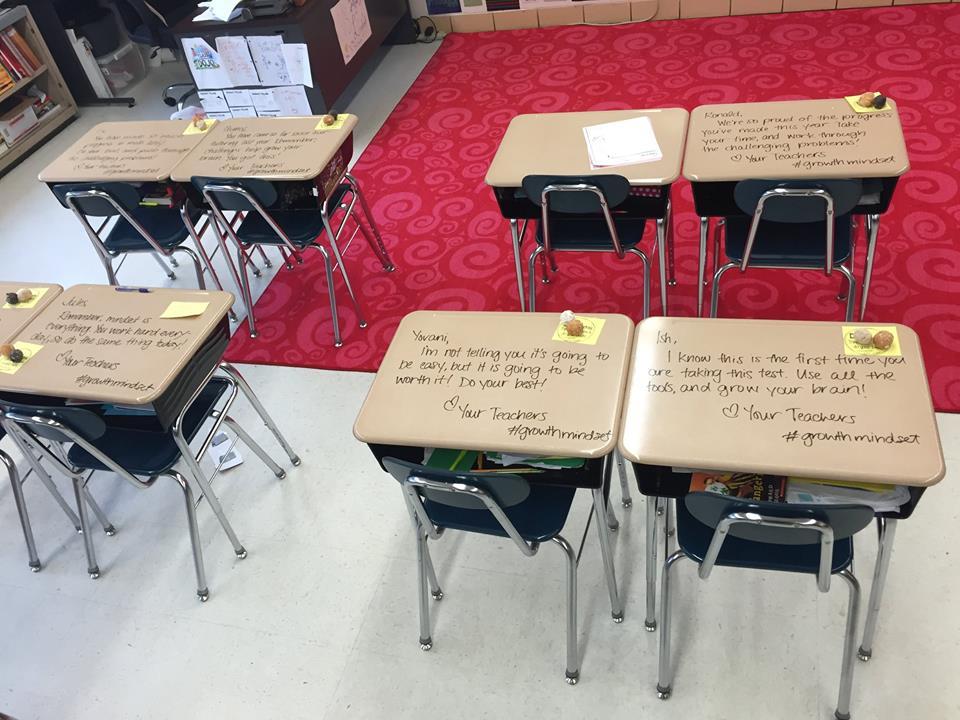 Ronald,
We're so proud of the progress
you've made this year. Take
your time, and work through
the challenging problems!
♡ Your Teachers
#growthmindset
challenges help grow your
brain. You got this!
♡ Your Teachers
#growthmindset
Jules,
Remember, mindset is
everything. You work hard every-
day, so do the same thing today!
♡ Your Teachers
#growthmindset
Yovani,
I'm not telling you it's going to
be easy, but it is going to be
worth it! Do your best!
♡ Your Teachers
#growthmindset
Ish,
I know this is the first time you
are taking this test. Use all the
tools, and grow your brain!
♡ Your Teachers
#growthmindset